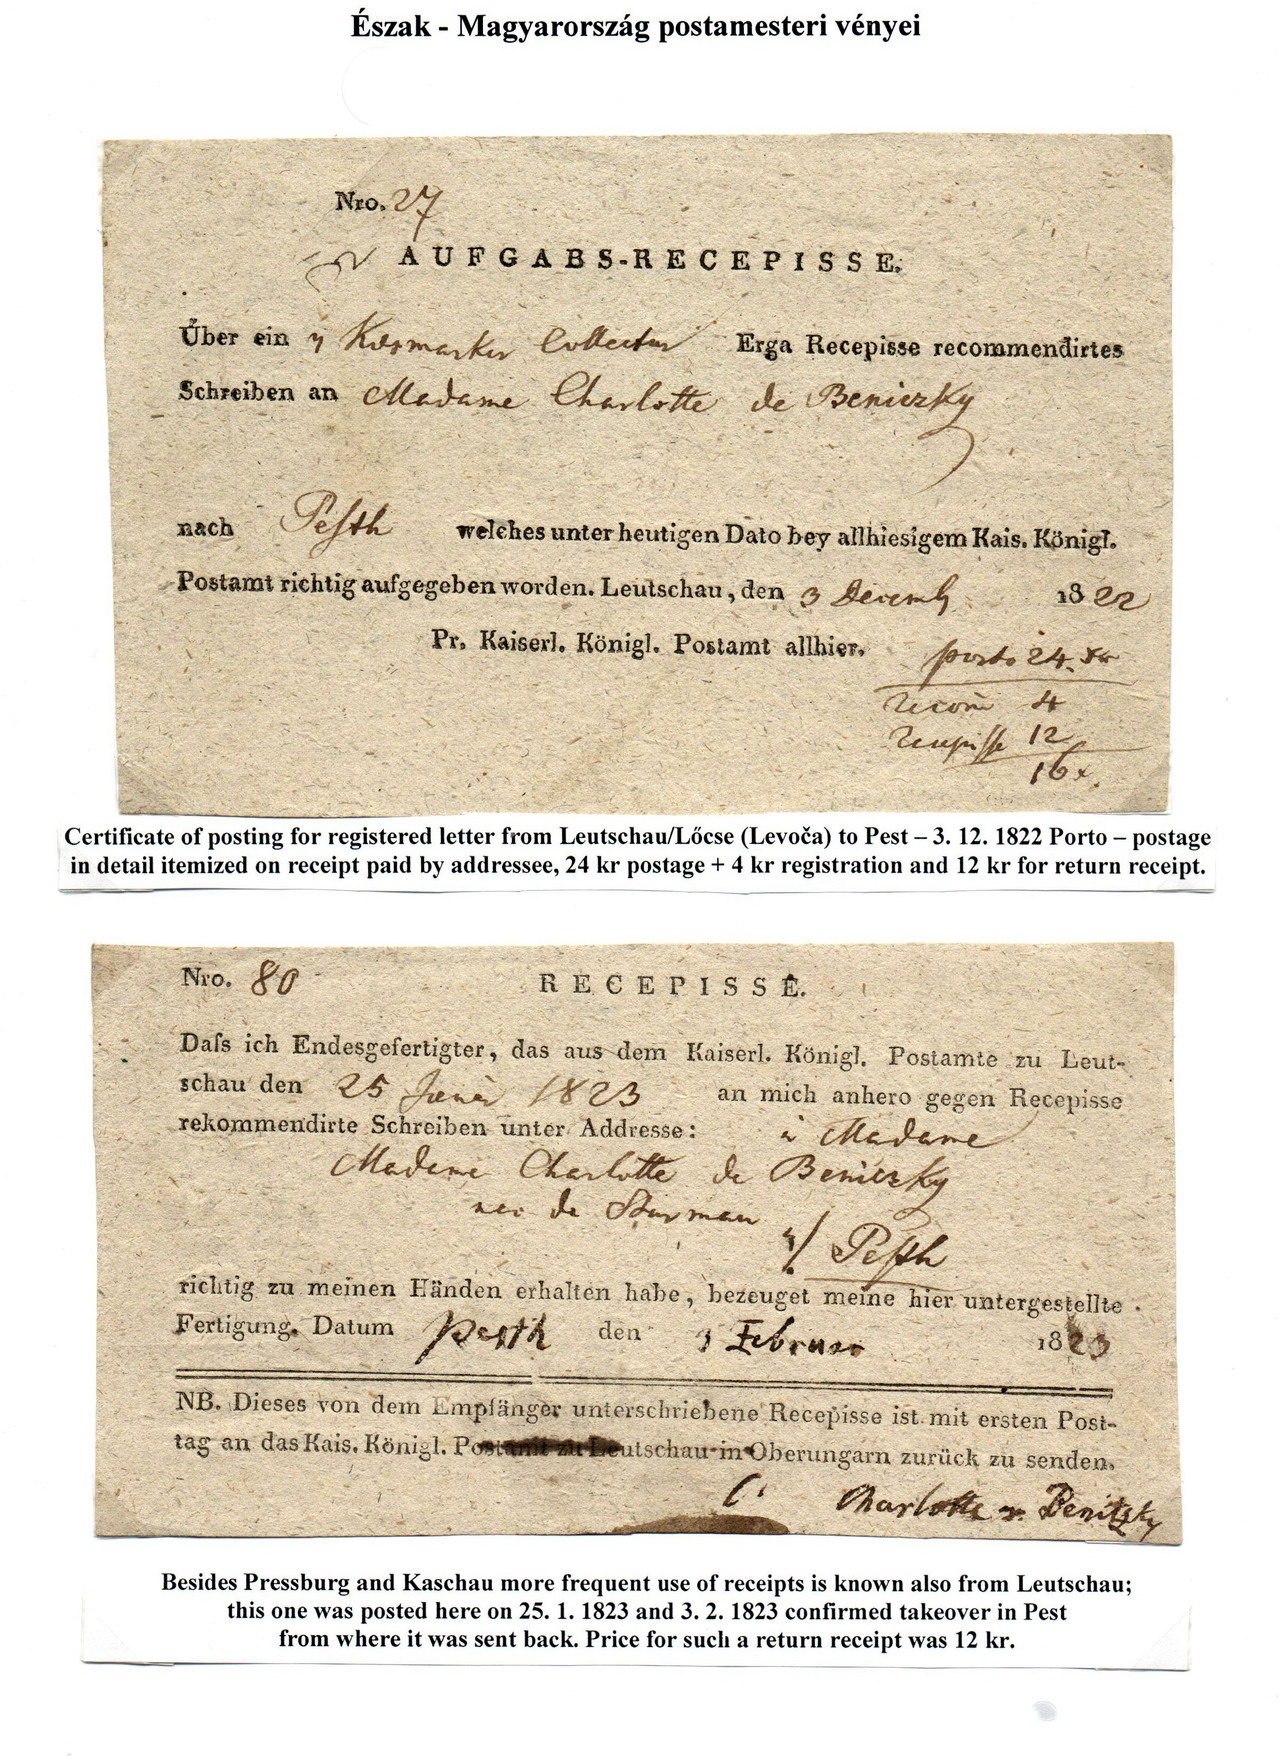 Észak - Magyarország postamesteri vényei
Nro. 27
AUFGABS-RECEPISSE.
Über ein Kesmarker Collectur Erga Recepisse recommendirtes
Schreiben an Madame Charlotte de Beniczky
nach Pesth welches unter heutigen Dato bey allhiesigem Kais. Königl.
Postamt richtig aufgegeben worden. Leutschau, den 3 Decemb 1822
Pr. Kaiserl. Königl. Postamt allhier.
porto 24 xr
recom 4
recepisse 12
16 x.
Certificate of posting for registered letter from Leutschau/Lőcse (Levoča) to Pest – 3. 12. 1822 Porto – postage
in detail itemized on receipt paid by addressee, 24 kr postage + 4 kr registration and 12 kr for return receipt.
Nro. 80 RECEPISSE.
Daſs ich Endesgefertigter, das aus dem Kaiserl. Königl. Postamte zu Leut-
schau den 25 Jener 1823 an mich anhero gegen Recepisse
rekommendirte Schreiben unter Addresse: à Madame
Madame Charlotte de Beniczky
nee de
Pesth
richtig zu meinen Händen erhalten habe, bezeuget meine hier untergestellte
Fertigung. Datum Pesth den 3 Februar 1823
NB. Dieses von dem Empfänger unterschriebene Recepisse ist mit ersten Post-
tag an das Kais. Königl. Postamt zu Leutschau in Oberungarn zurück zu senden.
Charlotte v. Benitzky
Besides Pressburg and Kaschau more frequent use of receipts is known also from Leutschau;
this one was posted here on 25. 1. 1823 and 3. 2. 1823 confirmed takeover in Pest
from where it was sent back. Price for such a return receipt was 12 kr.